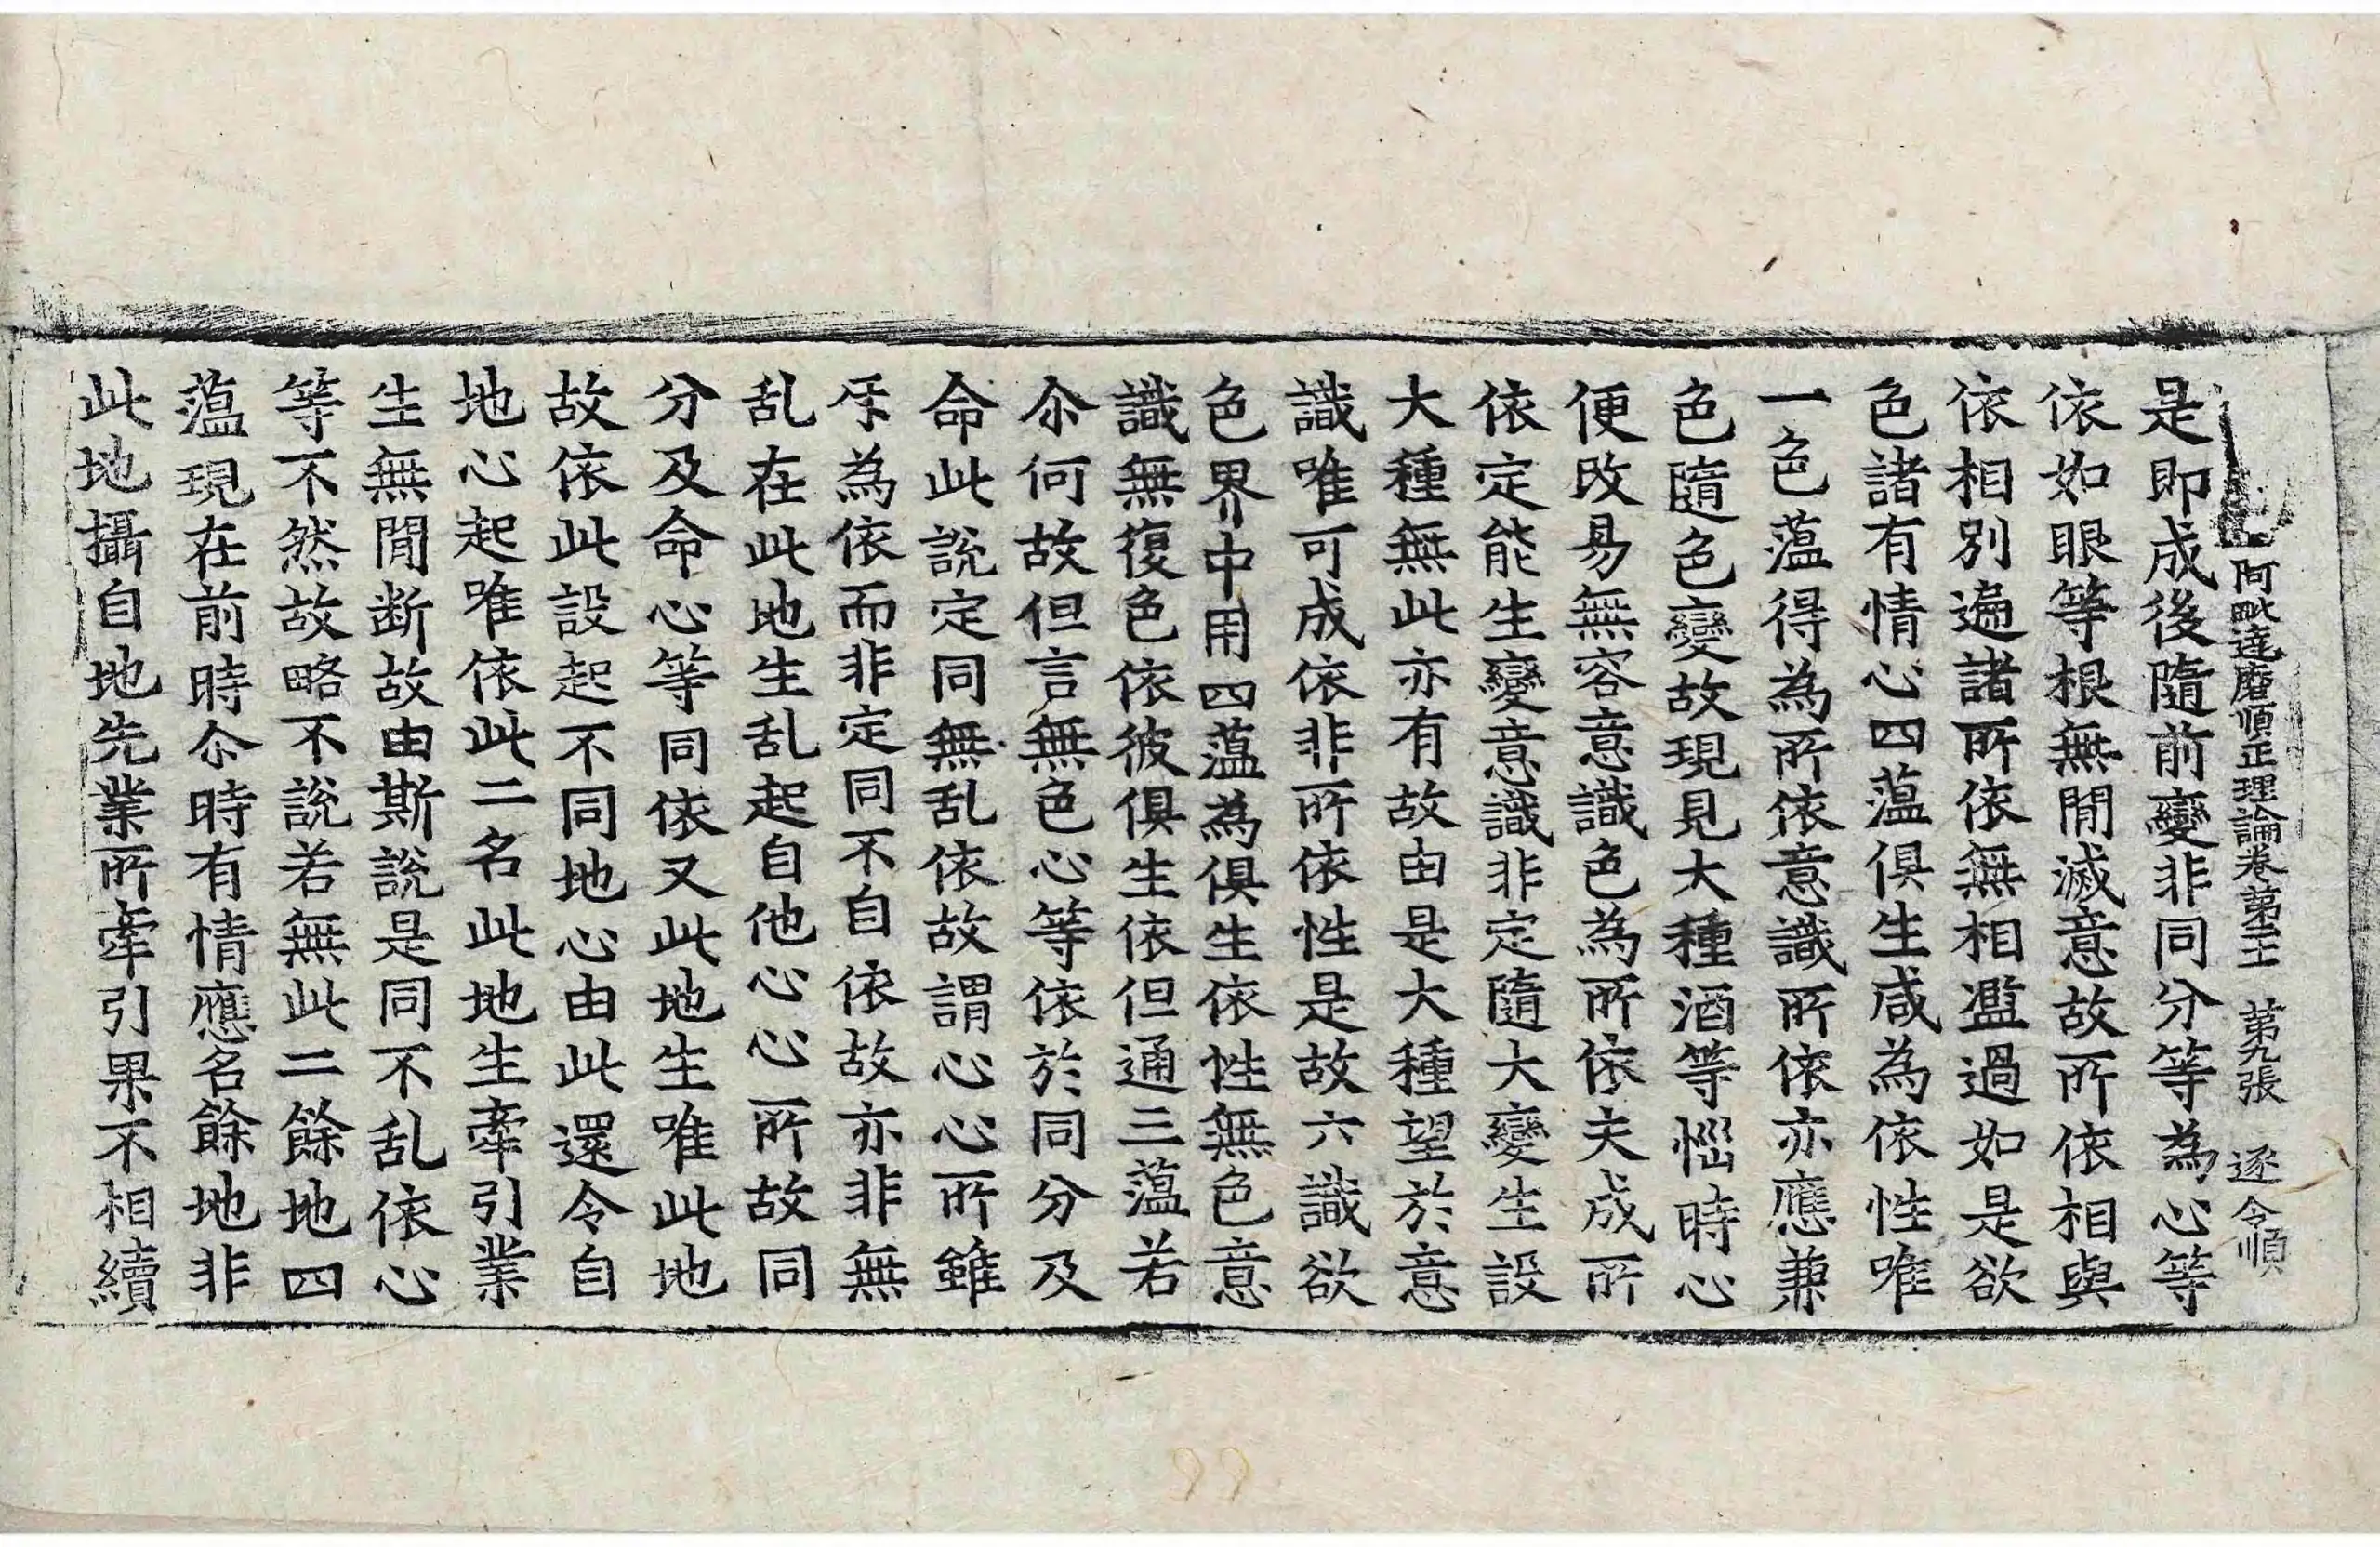 阿毗達磨順正理論卷第十三　第九張　逐　令順
是即成後隨前變非同分等為心等
依如眼等根無閒滅意故所依相與
依相別遍諸所依無相濫過如是欲
色諸有情心四薀俱生咸為依性唯
一色薀得為所依意識所依亦應兼
色隨色變故現見大種酒等惱時心
便改易無容意識色為所依夫成所
依定能生變意識非定隨大變生設
大種無此亦有故由是大種望於意
識唯可成依非所依性是故六識欲
色界中用四薀為俱生依性無色意
識無復色依彼俱生依但通三薀若
尒何故但言無色心等依於同分及
命此說定同無乱依故謂心心所雖
㸦為依而非定同不自依故亦非無
乱在此地生乱起自他心心所故同
分及命心等同依又此地生唯此地
故依此設起不同地心由此還令自
地心起唯依此二名此地生牽引業
生無閒断故由斯說是同不乱依心
等不然故略不說若無此二餘地四
薀現在前時尒時有情應名餘地非
此地攝自地先業所牽引果不相續